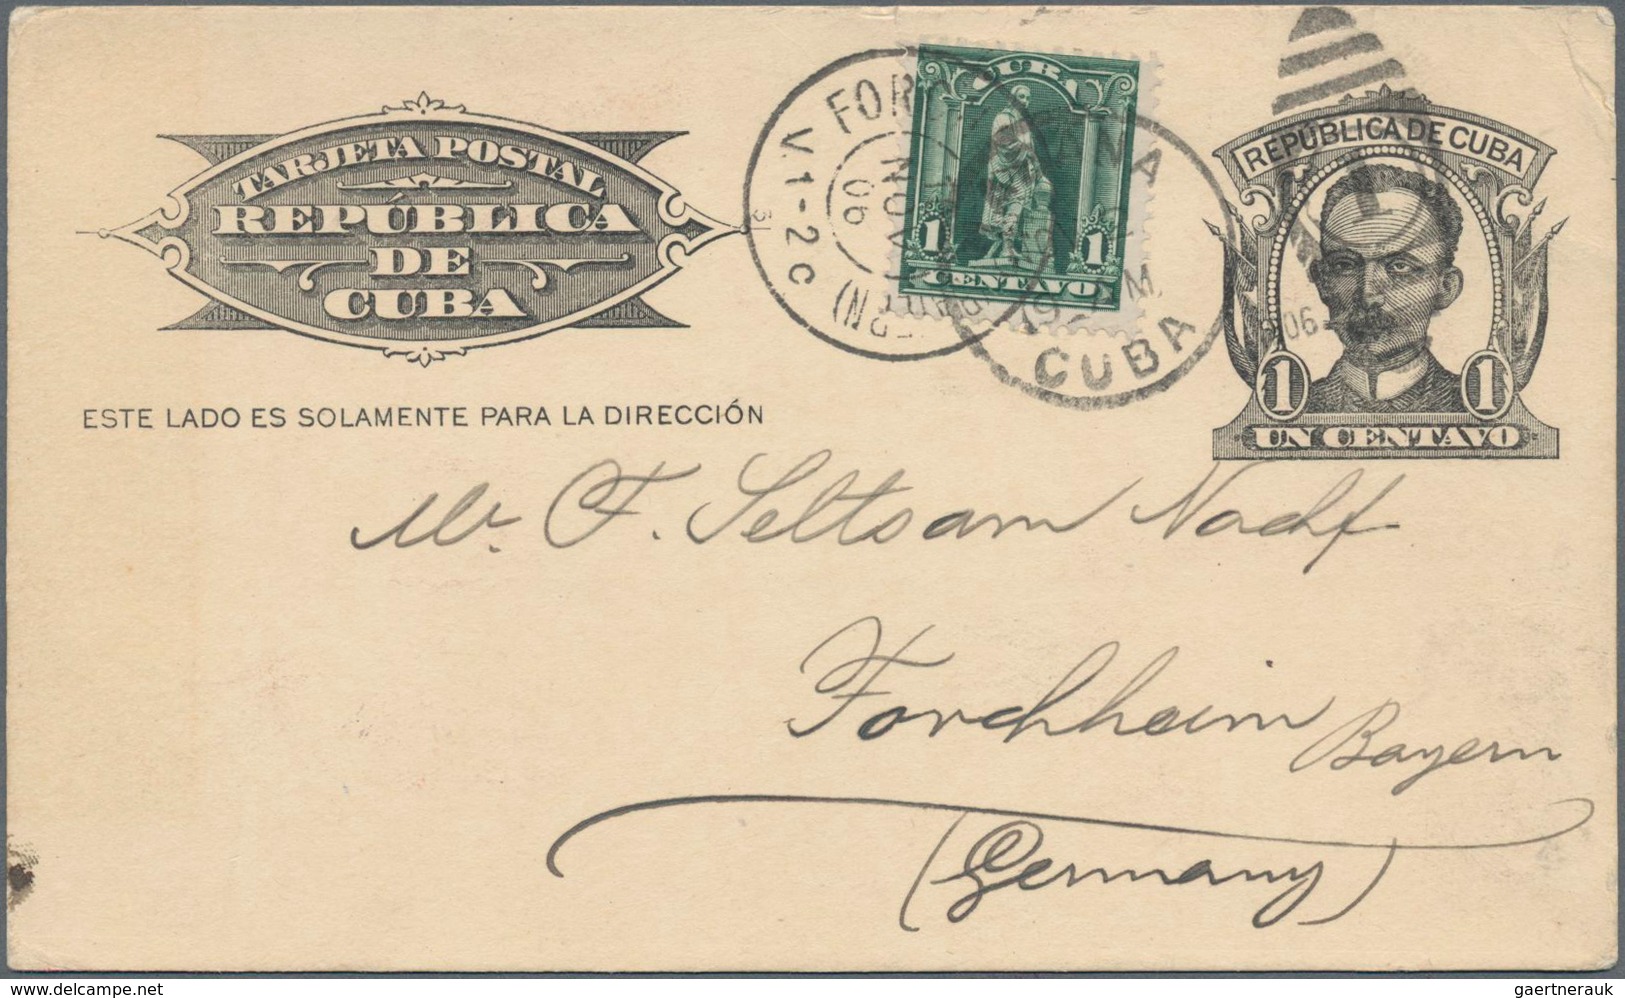 TARJETA POSTAL
REPÚBLICA
DE
CUBA
ESTE LADO ES SOLAMENTE PARA LA DIRECCIÓN
V. 1-2 c
NOV
06
1 1
CENTAVO
CUBA
REPÚBLICA DE CUBA
06
1 1
UN CENTAVO
Mr. F. Seltsam Nachf
Forchheim
Bayern
(Germany)
www.delcampe.net
gaertnerauk